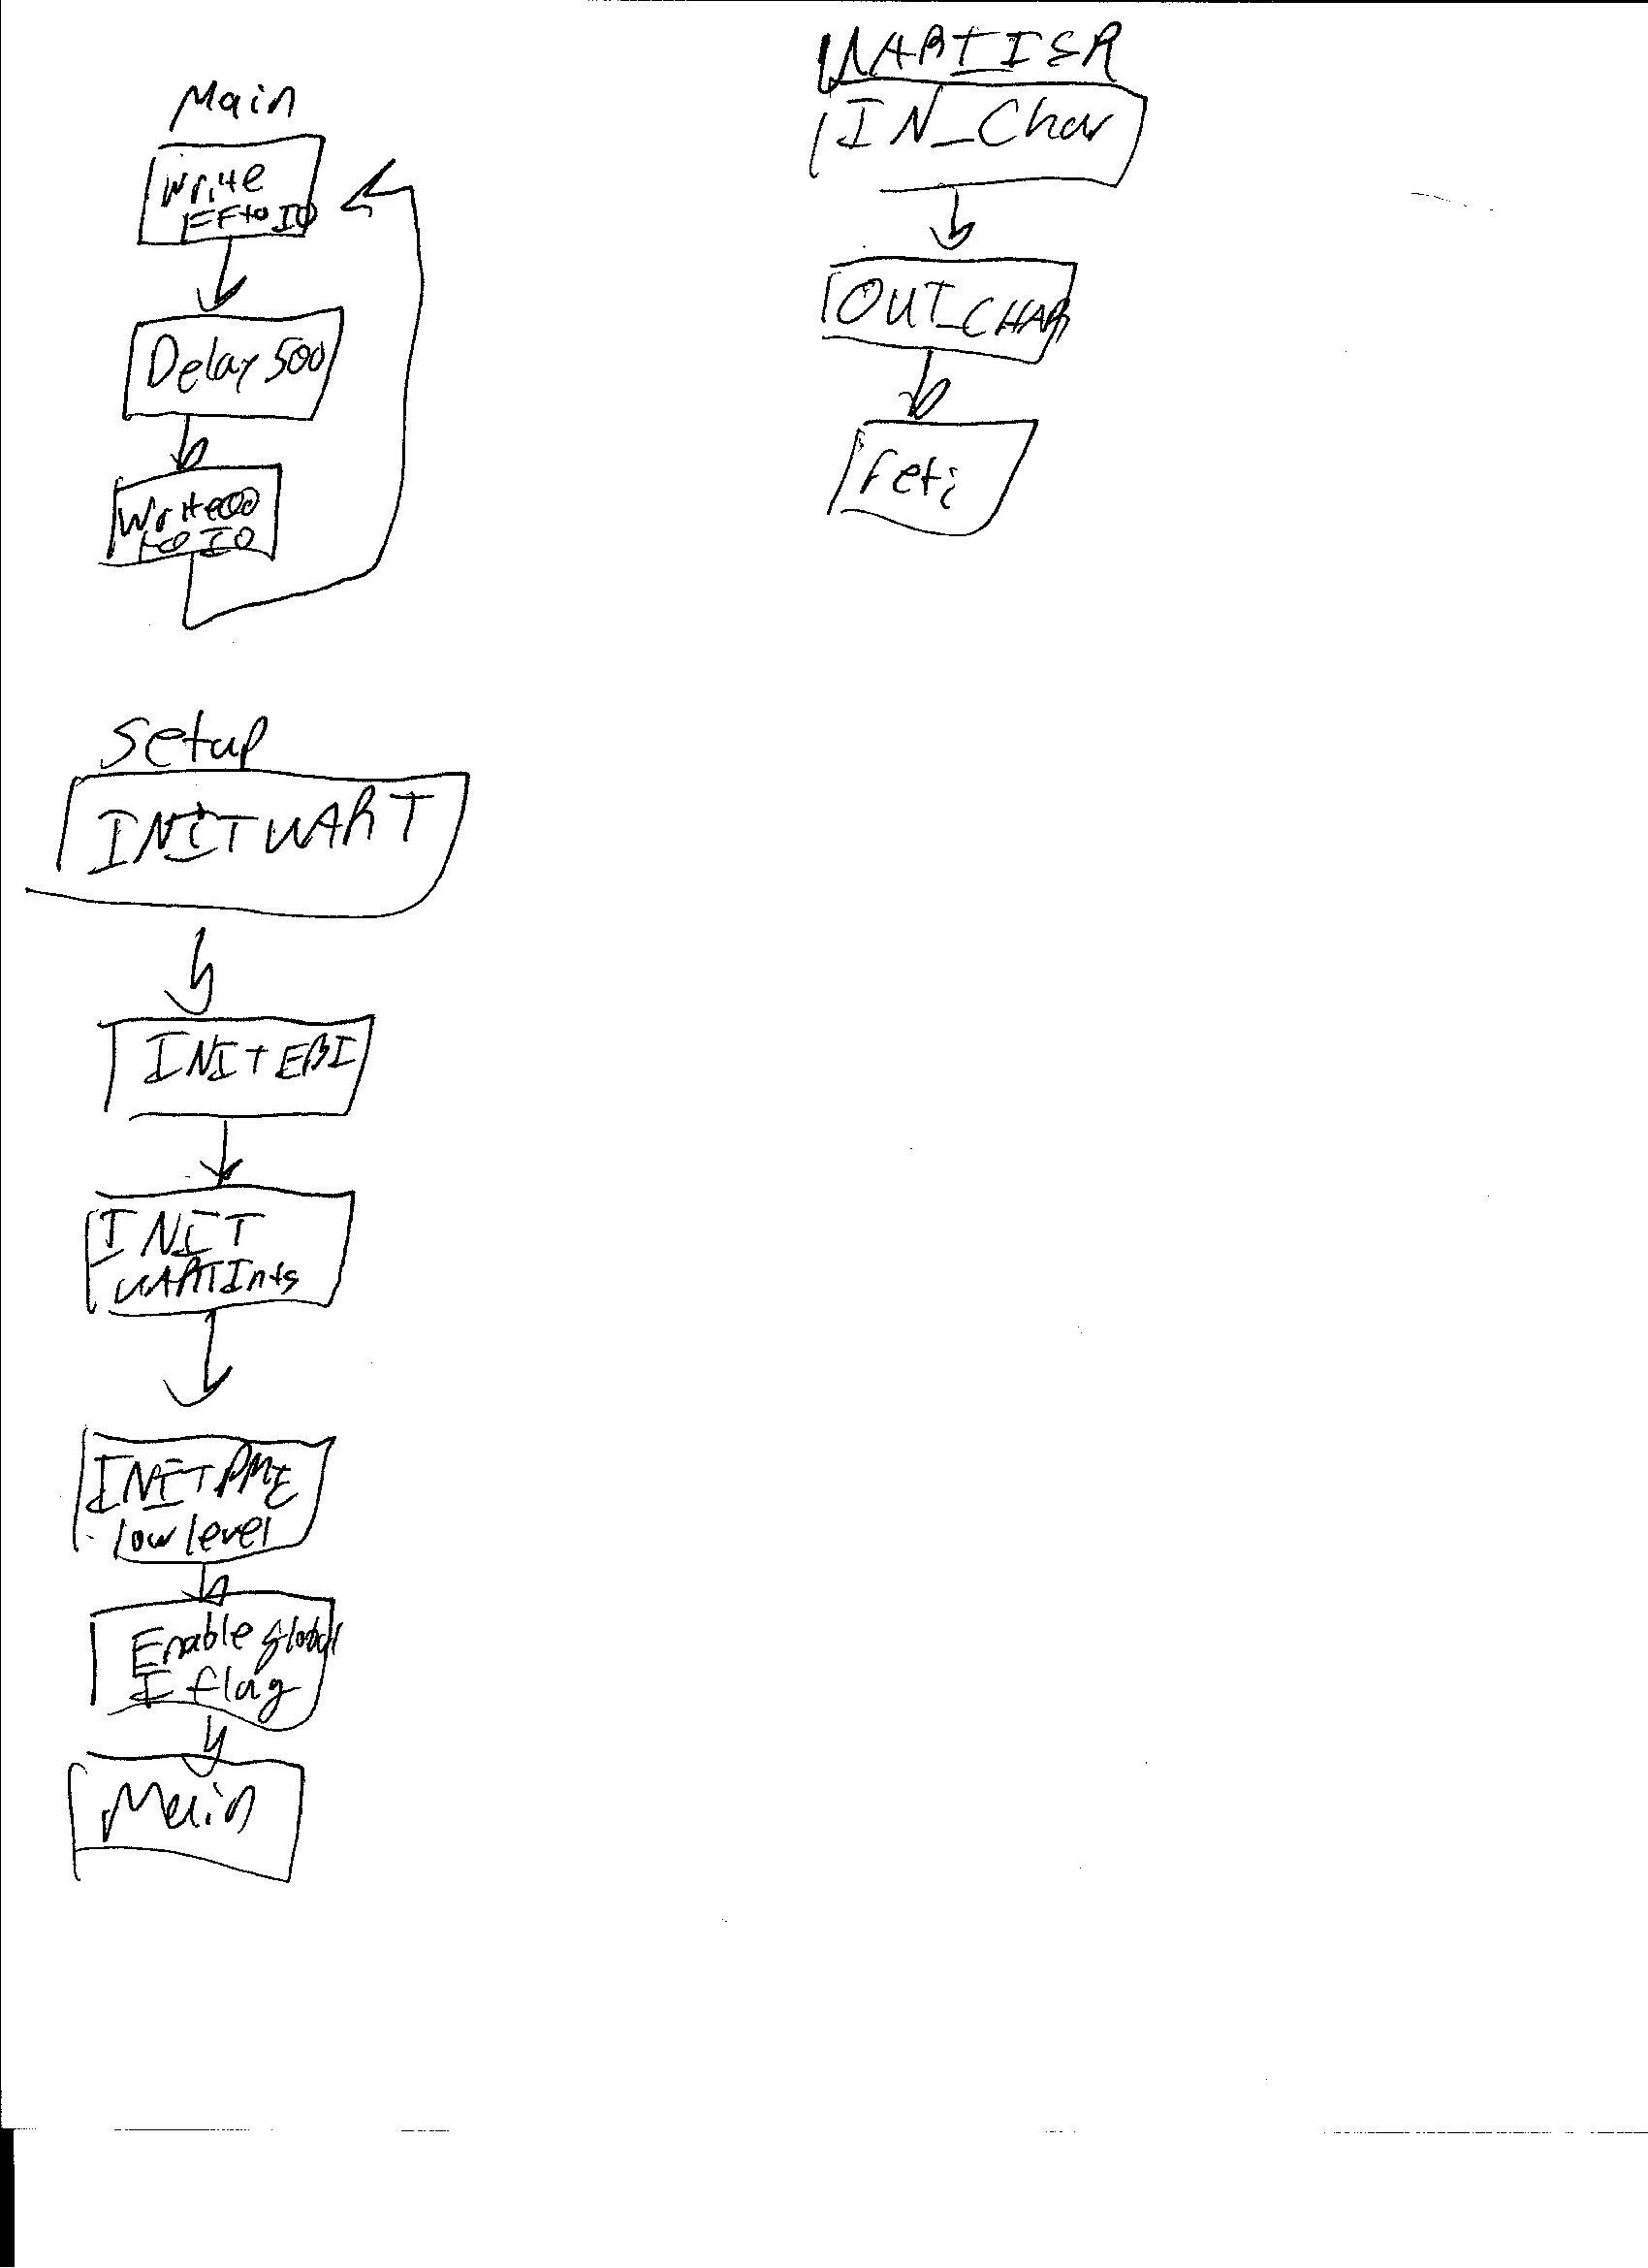 Main
Write
FF to IO
Delay 500
Write 00
to IO
Setup
INIT UART
INIT EBI
INIT
UARTInts
INIT PMIC
low level
Enable global
I flag
Main
UARTISR
IN_Char
OUT_CHAR
reti